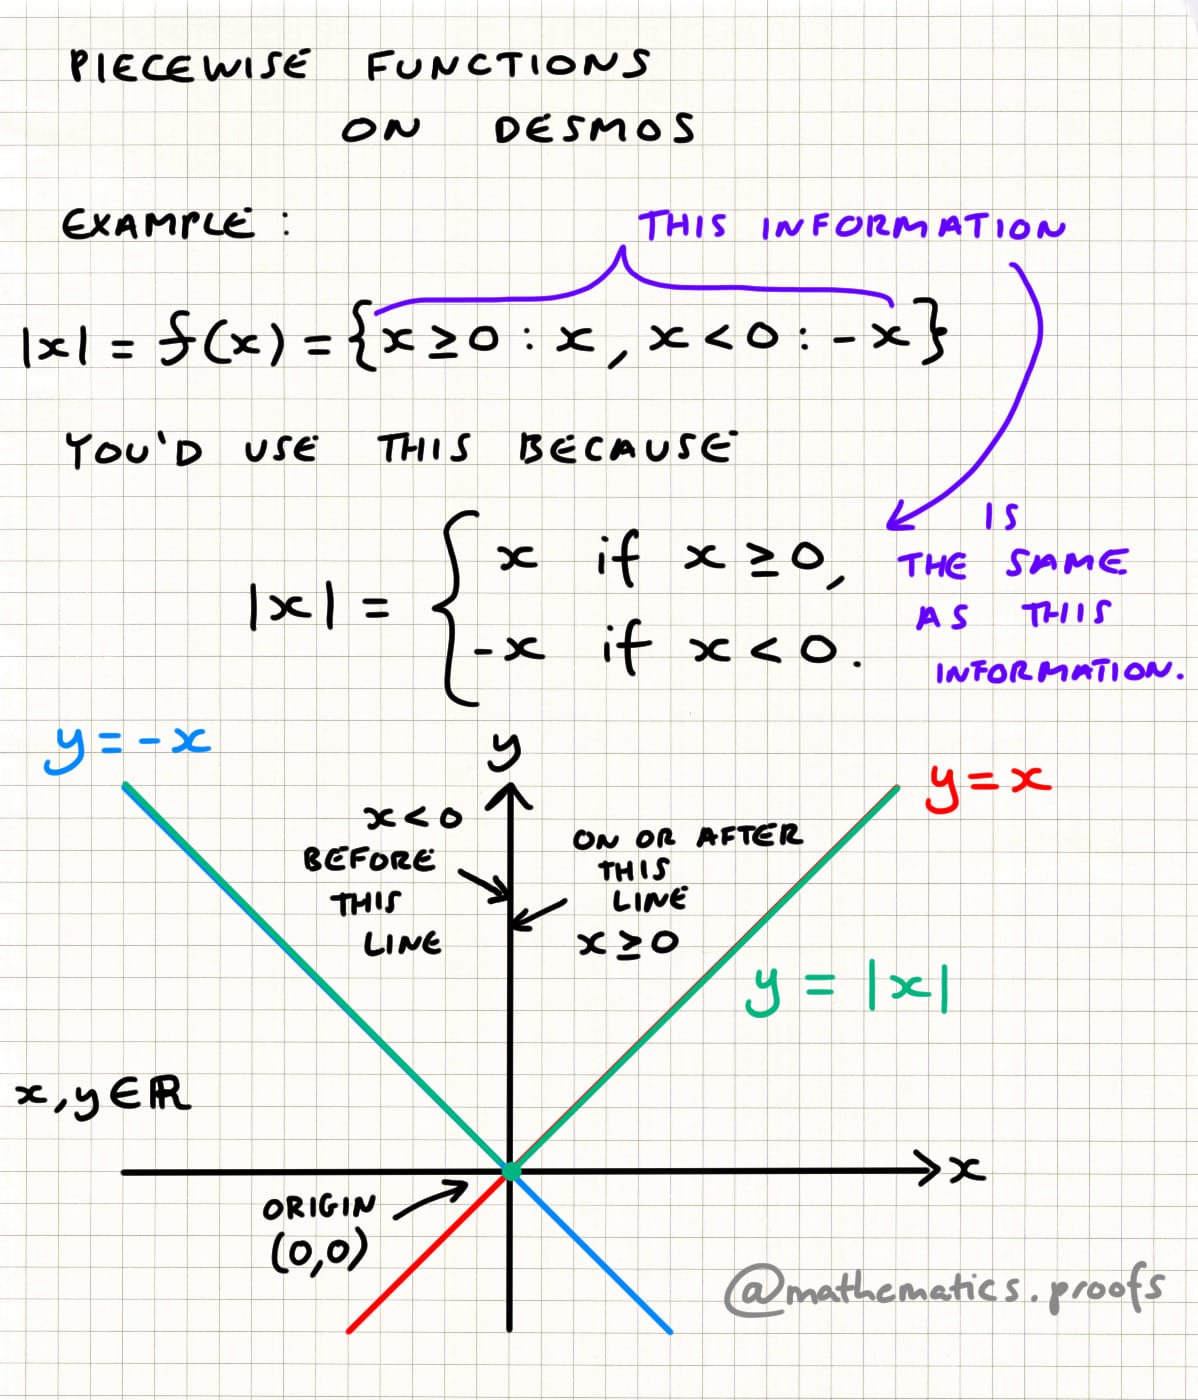 PIECEWISE FUNCTIONS
ON DESMOS
EXAMPLE:
THIS INFORMATION
|x| = f(x) = {x ≥ 0 : x, x < 0 : -x}
YOU'D USE THIS BECAUSE
|x| = {
x if x ≥ 0,
-x if x < 0.
IS
THE SAME
AS THIS
INFORMATION.
y = -x
y
y = x
x < 0
BEFORE
THIS
LINE
ON OR AFTER
THIS
LINE
x ≥ 0
y = |x|
x, y ∈ ℝ
x
ORIGIN
(0,0)
@mathematics.proofs